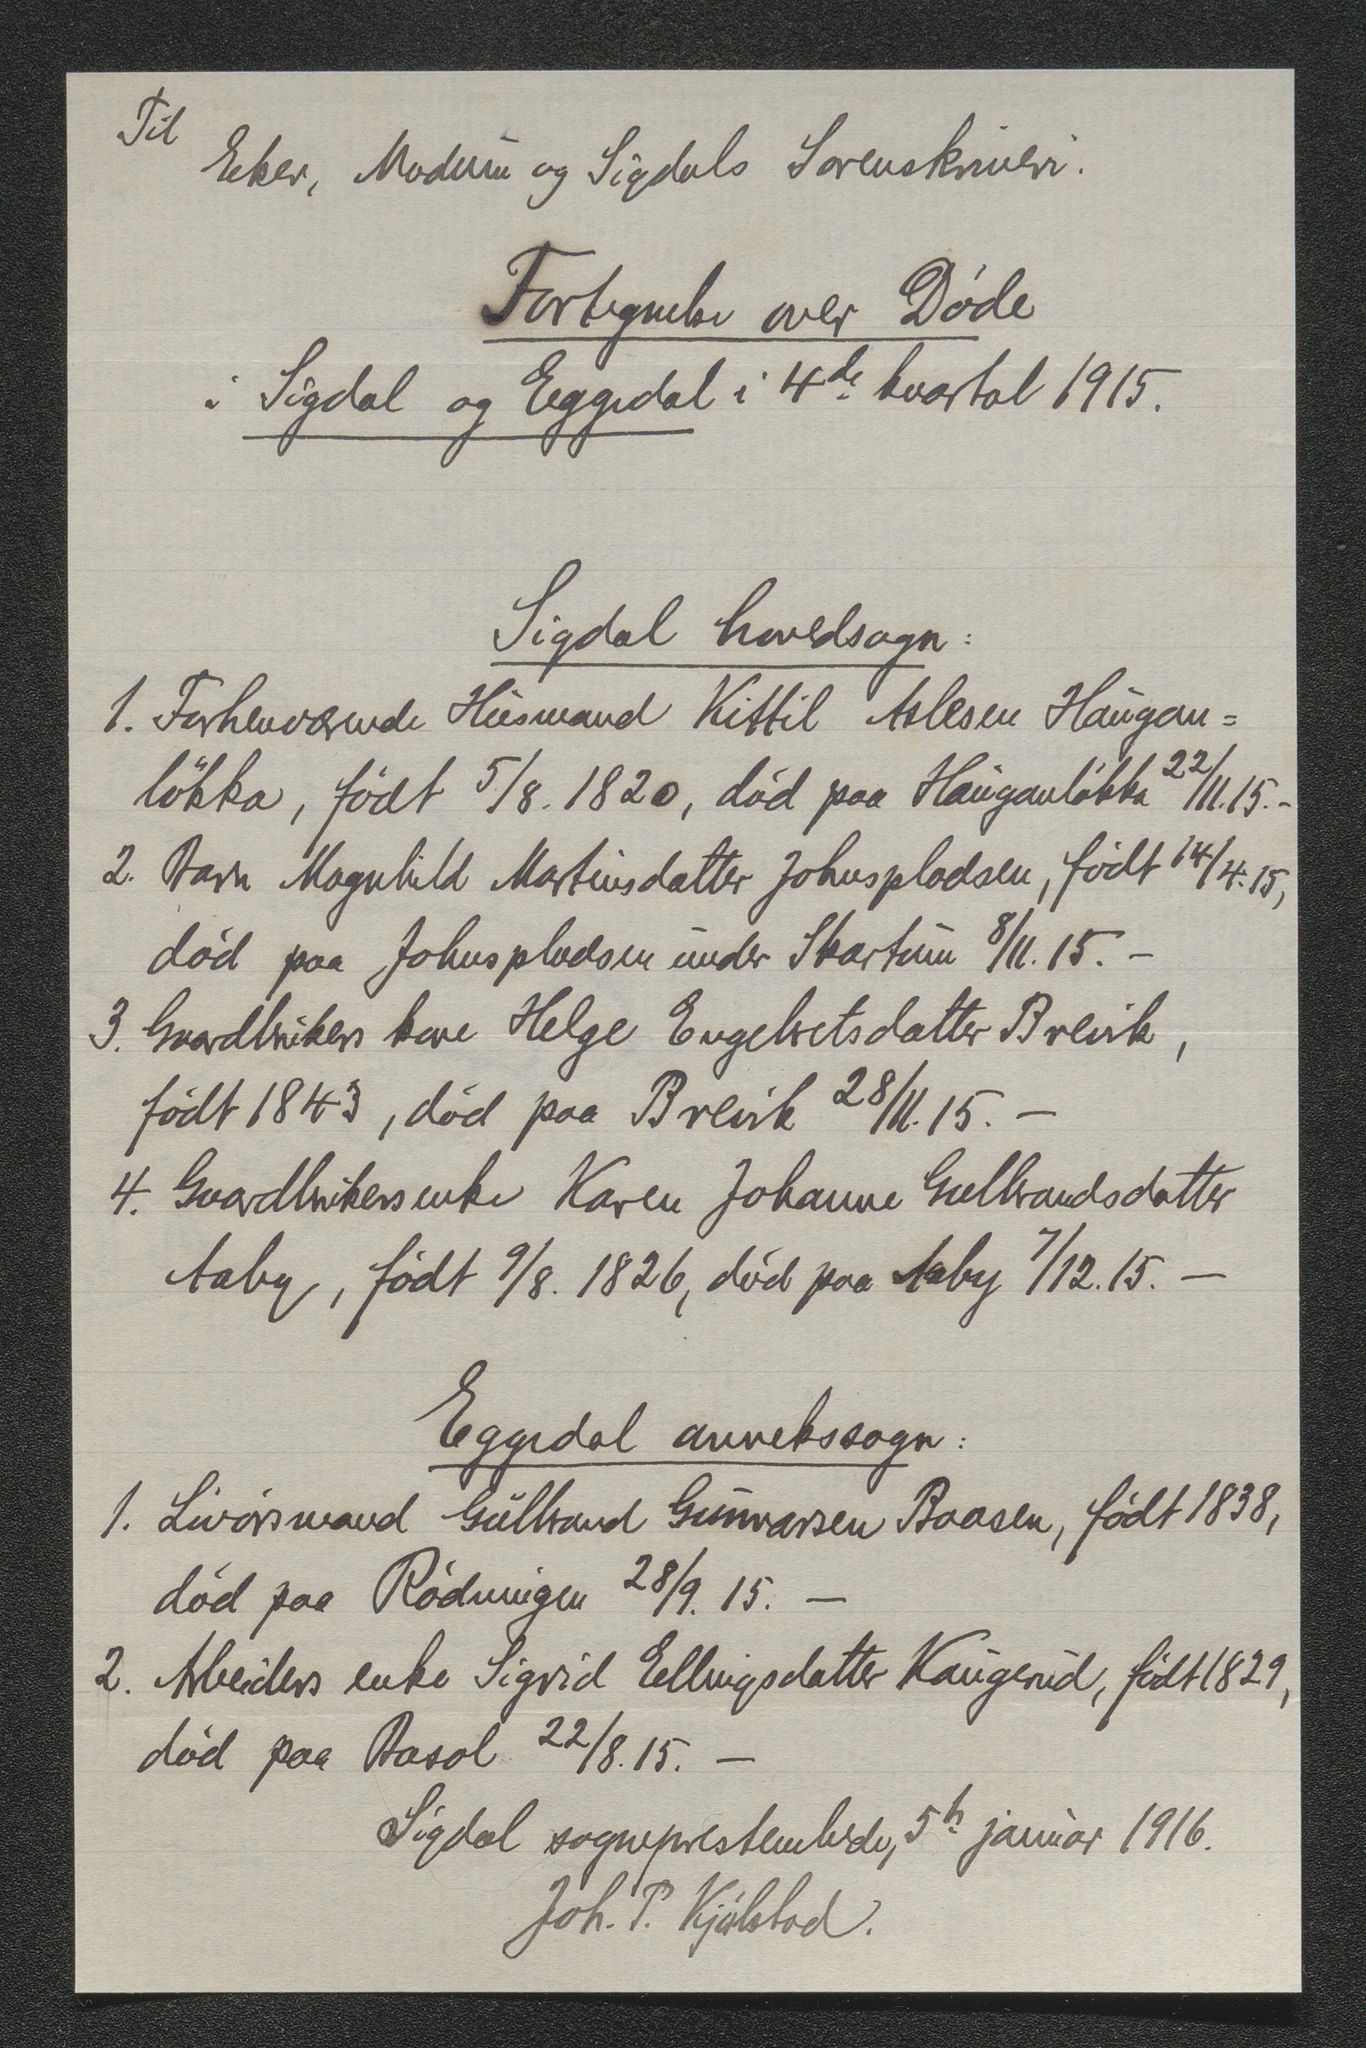 Til
Eker, Modum og Sigdals Sorenskriveri.
Fortegnelse over Døde
i Sigdal og Eggedal i 4de kvartal 1915.
Sigdal hovedsogn:
1. Forhenværende Husmand Kittil Aslesen Haugan=
løkka, født 5/8. 1820, død paa Hauganløkka 22/11.15.-
2. Barn Magnhild Martinsdatter Johnspladsen, født 14/4.15,
død paa Johnspladsen under Skartum 8/11.15. -
3. Gaardbrukers kone Helge Engebretsdatter Brevik,
født 1843, død paa Brevik 28/11.15. -
4. Gaardbrukers enke Karen Johanne Gulbrandsdatter
Aaby, født 9/8. 1826, død paa Aaby 7/12.15. -
Eggedal annekssogn:
1. Livørsmand Gulbrand Gunnarsen Baasen, født 1838,
død paa Rødningen 28/9.15. -
2. Arbeiders enke Sigrid Ellingsdatter Kaugerud, født 1829,
død paa Basol 22/8.15. -
Sigdal sogneprestembede, 5te januar 1916.
Joh. P. Kjølstad.